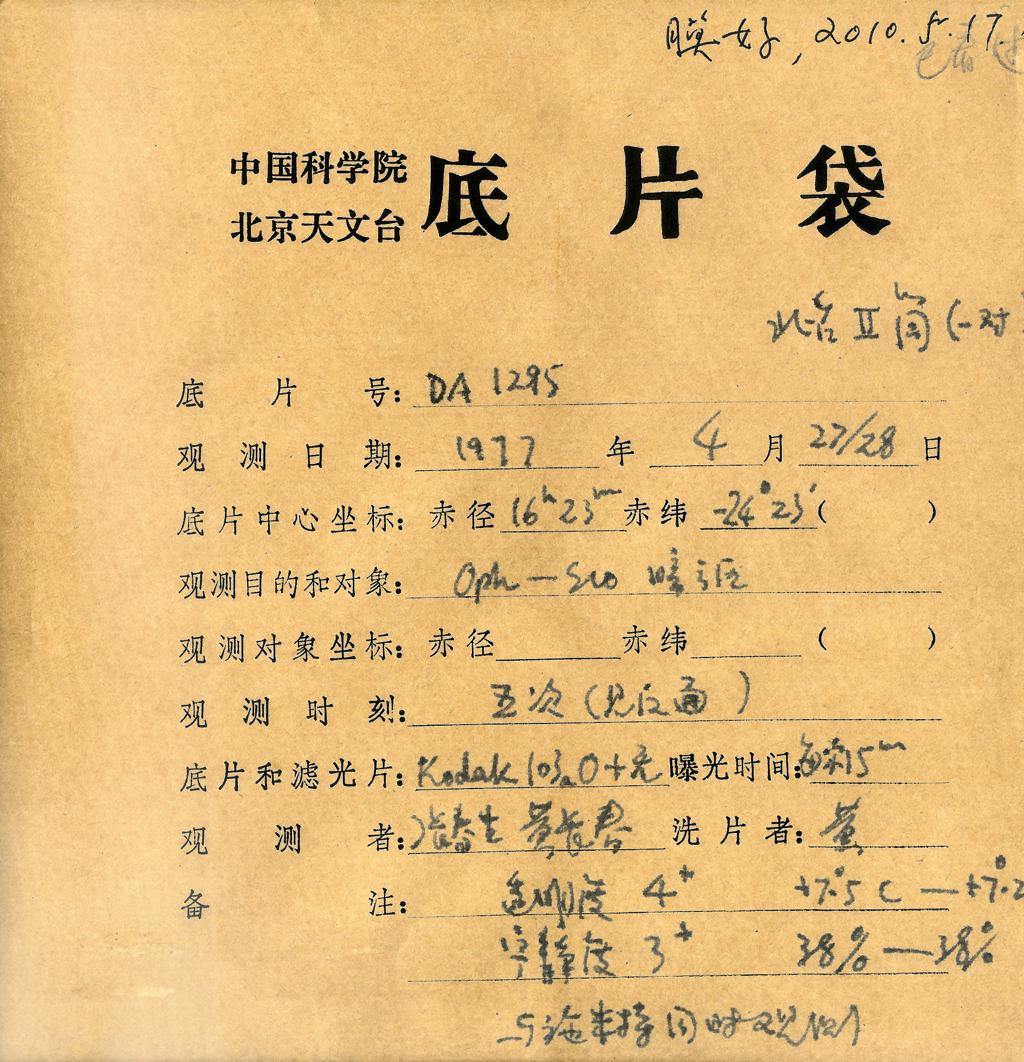 膜好, 2010.5.17.
已看过
中国科学院
北京天文台
底片袋
北台 II 筒 (一对
底片号: DA 1295
观测日期: 1977 年 4 月 27/28 日
底片中心坐标: 赤径 16h23m 赤纬 -24°23′ ( )
观测目的和对象: Oph—Sco 暗云区
观测对象坐标: 赤径 赤纬 ( )
观测时刻: 五次 (见反面)
底片和滤光片: Kodak 103aO+无 曝光时间: 每次15m
观测者: 春生 黄长春 洗片者: 黄
备注: 透明度 4+ +7°.5 C — +7°.2
宁静度 3+ 38% — 38%
与施米特同时观测